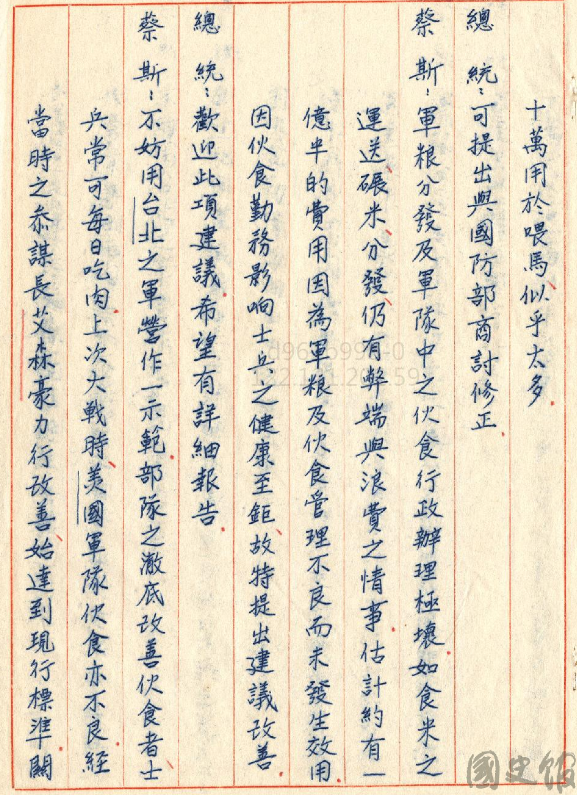 十萬用於喂馬似乎太多
總統：可提出與國防部商討修正
蔡斯：軍粮分發及軍隊中之伙食行政辦理極壞如食米之
運送碾米分發仍有弊端與浪費之情事估計約有一
億半的費用因為軍粮及伙食管理不良而未發生效用
因伙食勤務影响士兵之健康至鉅故特提出建議改善
總統：歡迎此項建議希望有詳細報告
蔡斯：不妨用台北之軍營作一示範部隊之澈底改善伙食者士
兵常可每日吃肉上次大戰時美國軍隊伙食亦不良經
當時之參謀長艾森豪力行改善始達到現行標準關
國史館